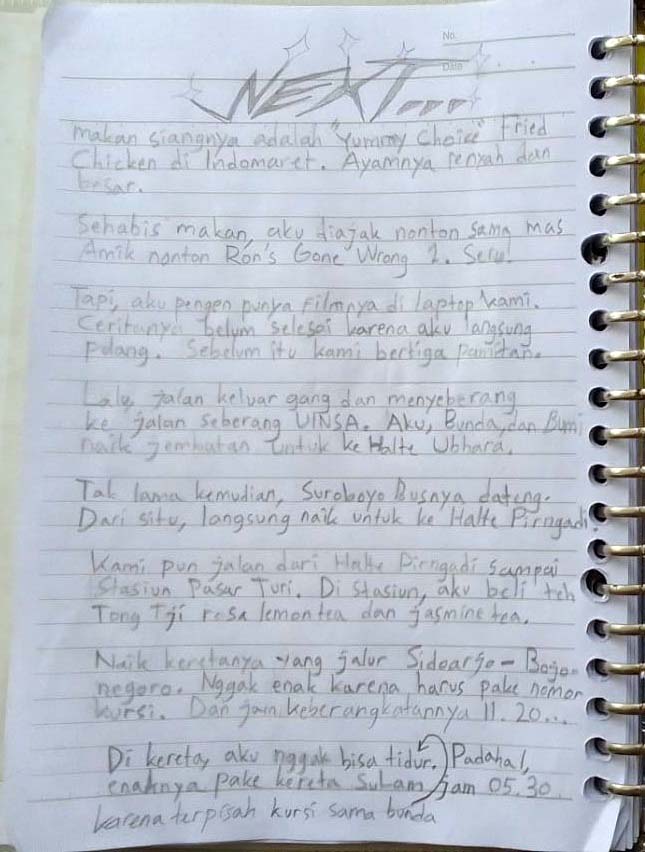 No.
Date
NEXT...
makan siangnya adalah "Yummy Choice" Fried
Chicken di Indomaret. Ayamnya renyah dan
besar.
Sehabis makan, aku diajak nonton sama mas
Amik nonton Ron's Gone Wrong 1. Seru!
Tapi, aku pengen punya filmnya di laptop kami.
Ceritanya belum selesai karena aku langsung
pulang. Sebelum itu kami bertiga pamitan.
Lalu, jalan keluar gang dan menyeberang
ke jalan seberang UINSA. Aku, Bunda, dan Bumi
naik jembatan untuk ke Halte Ubhara.
Tak lama kemudian, Suroboyo Busnya dateng.
Dari situ, langsung naik untuk ke Halte Pirngadi.
Kami pun jalan dari Halte Pirngadi sampai
Stasiun Pasar Turi. Di stasiun, aku beli teh
Tong Tji rasa lemon tea dan jasmine tea.
Naik keretanya yang jalur Sidoarjo - Bojo-
negoro. Nggak enak karena harus pake nomor
kursi. Dan jam keberangkatannya 11.20...
Di kereta, aku nggak bisa tidur. Padahal,
enaknya pake kereta jam 05.30
karena terpisah kursi sama bunda